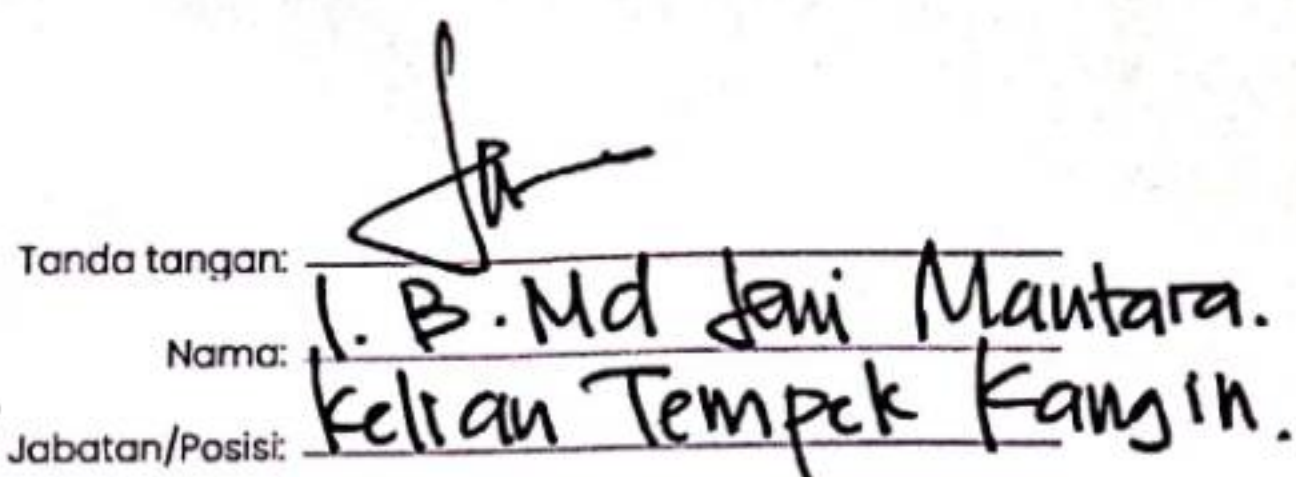 Tanda tangan:
Nama: I. B. Md Jani Mantara.
Jabatan/Posisi: Kelian Tempek Kangin.